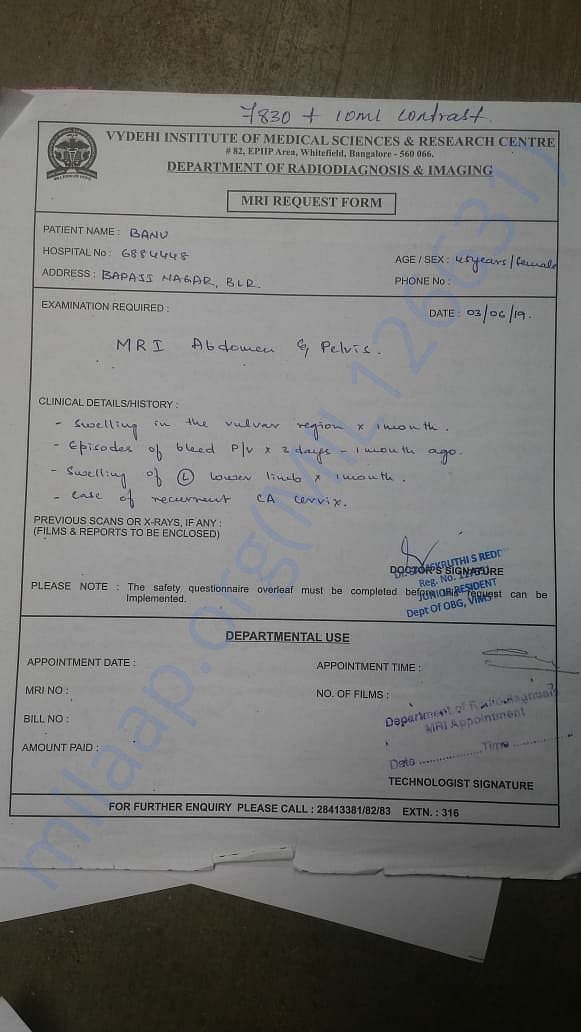 7830 + 10ml contrast.
VYDEHI INSTITUTE OF MEDICAL SCIENCES & RESEARCH CENTRE
# 82, EPIIP Area, Whitefield, Bangalore - 560 066.
DEPARTMENT OF RADIODIAGNOSIS & IMAGING
MRI REQUEST FORM
PATIENT NAME : BANU
HOSPITAL No : 6884448
AGE / SEX : 45years/female
ADDRESS : BAPAJI NAGAR, BLR.
PHONE No :
EXAMINATION REQUIRED :
DATE : 03/06/19.
MRI Abdomen & Pelvis.
CLINICAL DETAILS/HISTORY :
- Swelling in the vulvar region x 1month.
- Episodes of bleed P/V x 2days - 1month ago.
- Swelling of (L) lower limb x 1month.
- case of recurrent CA cervix.
PREVIOUS SCANS OR X-RAYS, IF ANY :
(FILMS & REPORTS TO BE ENCLOSED)
DOCTOR'S SIGNATURE
Reg. No.
JUNIOR RESIDENT
Dept Of OBG, VIMS
PLEASE NOTE : The safety questionnaire overleaf must be completed before this request can be
Implemented.
DEPARTMENTAL USE
APPOINTMENT DATE :
APPOINTMENT TIME :
MRI NO :
NO. OF FILMS :
BILL NO :
Department of Radiodiagnosis
MRI Appointment
AMOUNT PAID :
Date ..................Time ..................
TECHNOLOGIST SIGNATURE
FOR FURTHER ENQUIRY PLEASE CALL : 28413381/82/83 EXTN. : 316
milaap.org(MIL126631)